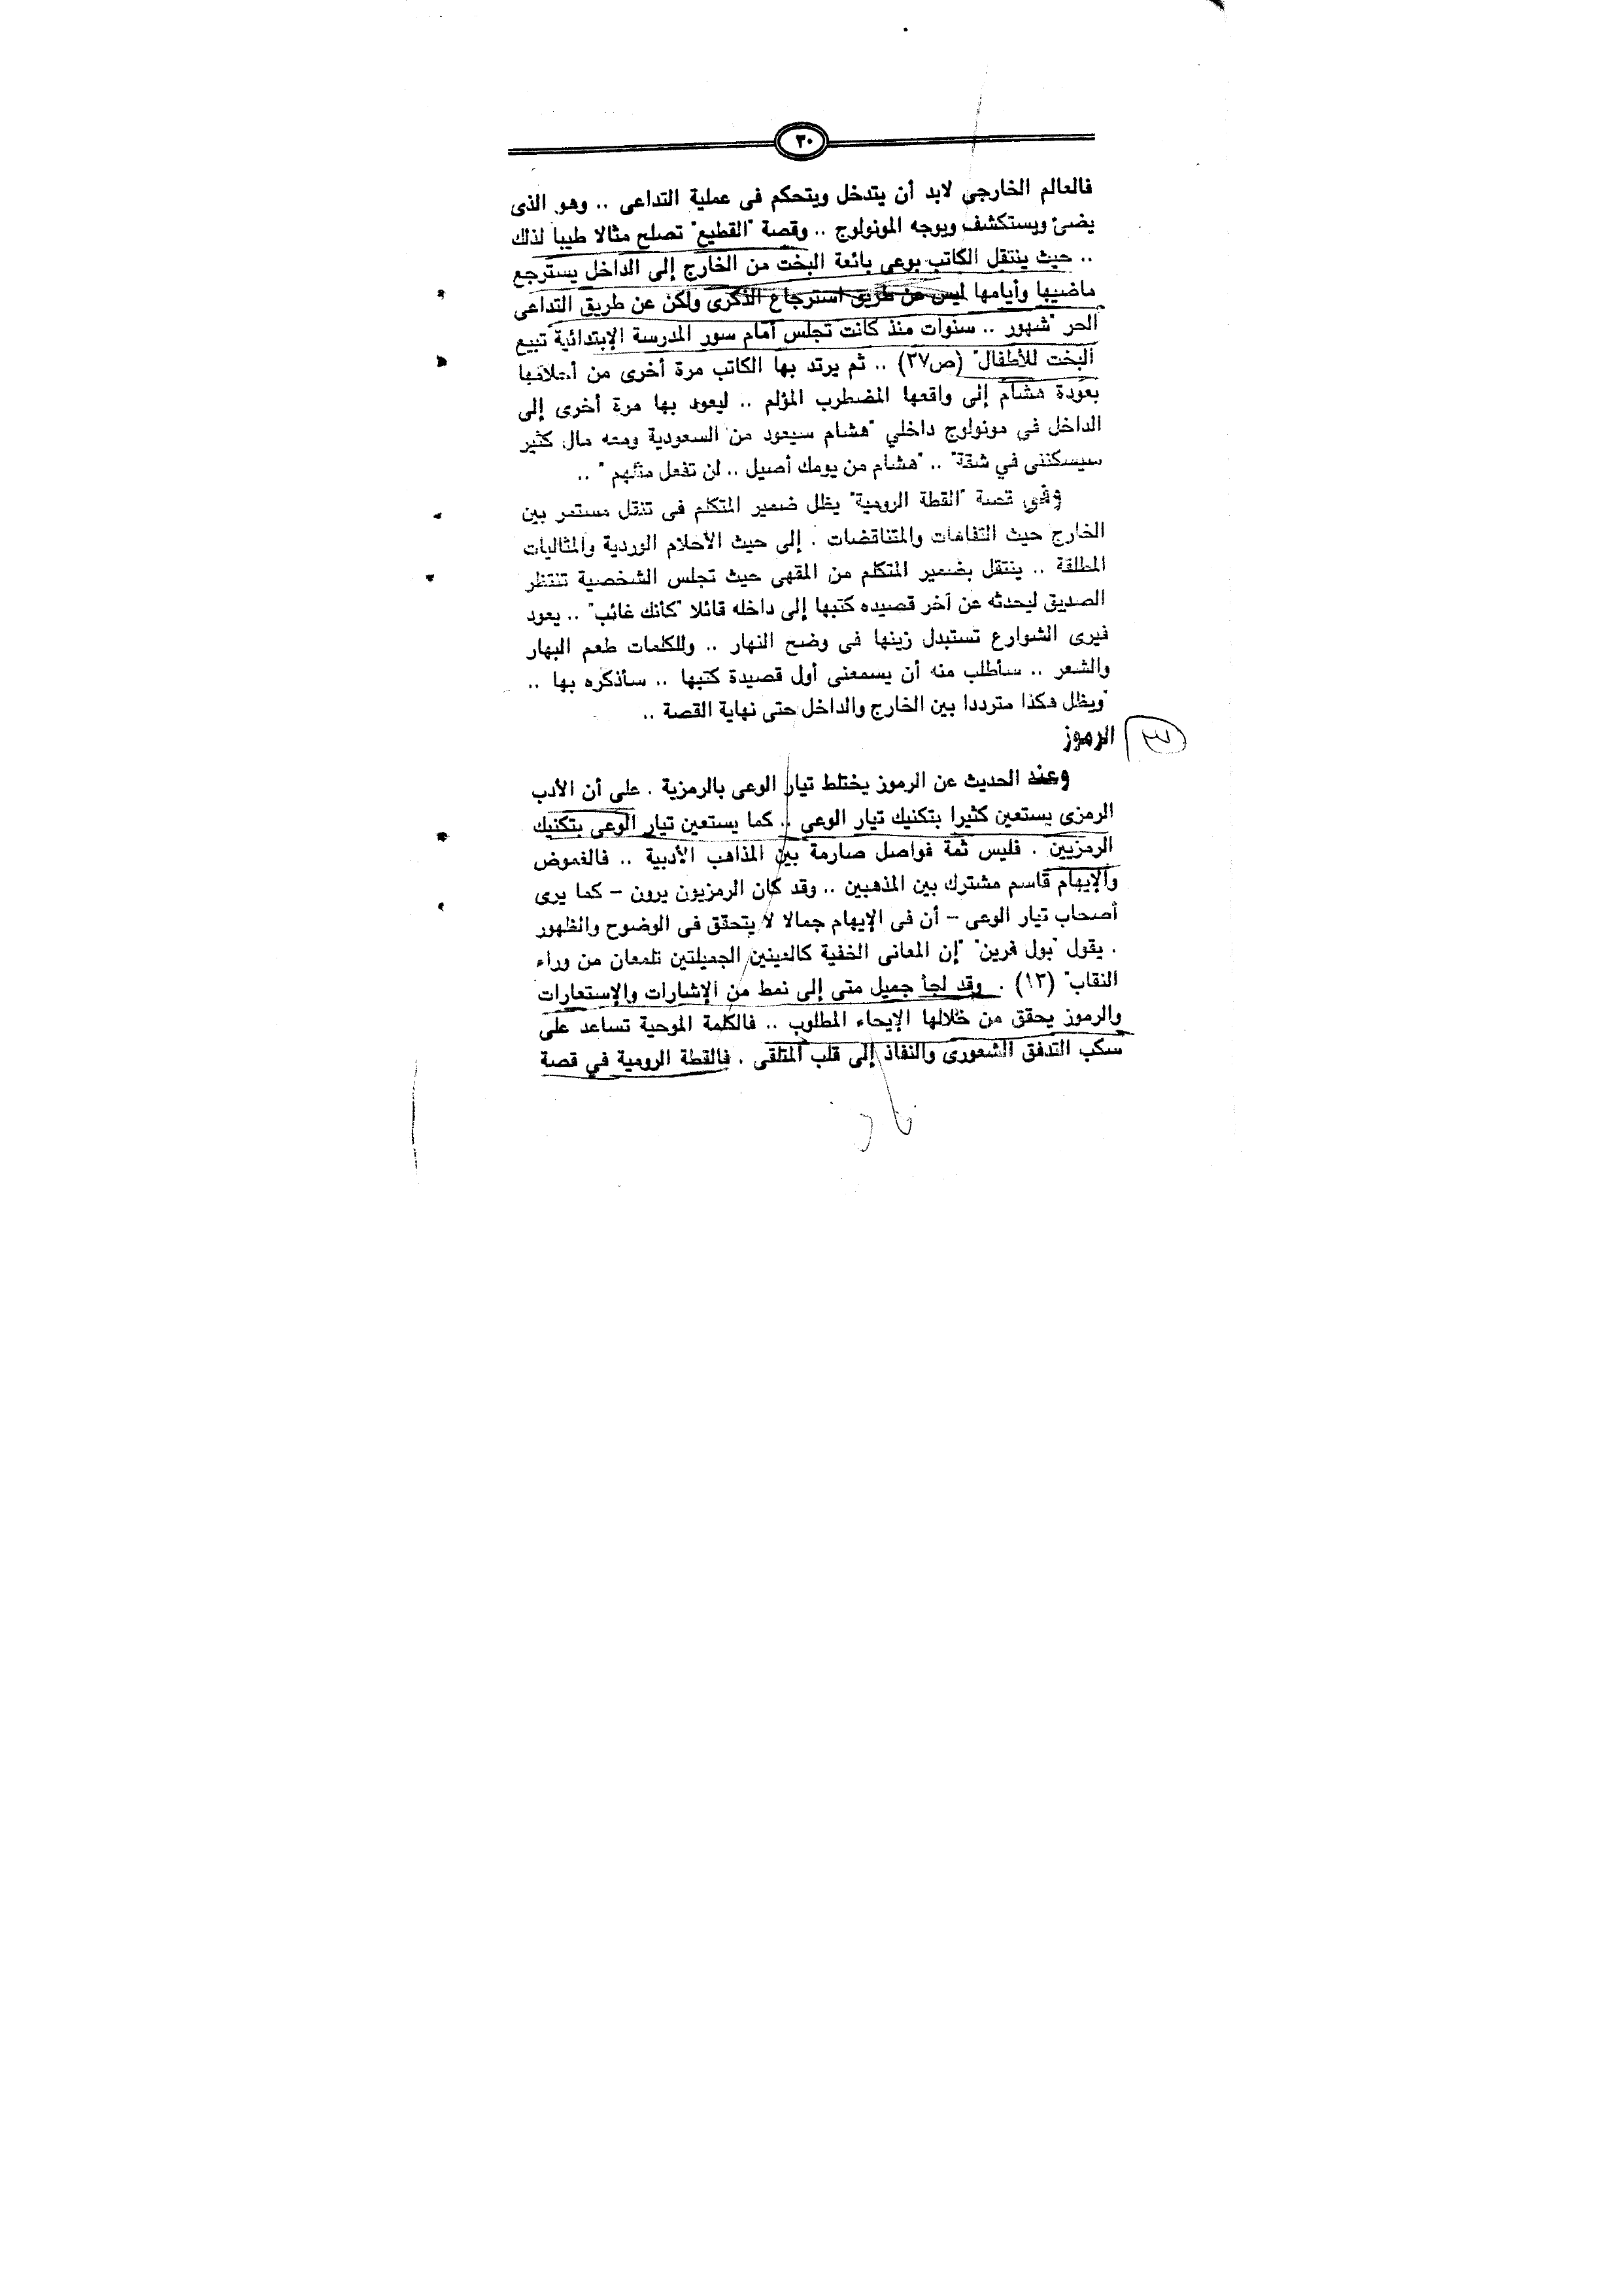 ٣٠
فالعالم الخارجي لابد أن يتدخل ويتحكم فى عملية التداعى .. وهو الذى
يضئ ويستكشف ويوجه المونولوج .. وقصة "القطيع" تصلح مثالا طيبا لذلك
.. حيث ينتقل الكاتب بوعى بائعة البخت من الخارج إلى الداخل يسترجع
ماضيها وأيامها ليس عن طريق استرجاع الذكرى ولكن عن طريق التداعى
الحر "شهور .. سنوات منذ كانت تجلس أمام سور المدرسة الإبتدائية تبيع
البخت للأطفال" (ص٢٧) .. ثم يرتد بها الكاتب مرة أخرى من أحلامها
بعودة هشام إلى واقعها المضطرب المؤلم .. ليعود بها مرة أخرى إلى
الداخل في مونولوج داخلي "هشام سيعود من السعودية ومعه مال كثير
سيسكننى في شقة" .. "هشام من يومك أصيل .. لن تفعل مثلهم" ..
وفي قصة "القطة الرومية" يظل ضمير المتكلم فى تنقل مستمر بين
الخارج حيث التفاهات والمتناقضات . إلى حيث الأحلام الوردية والمثاليات
المطلقة .. ينتقل بضمير المتكلم من المقهى حيث تجلس الشخصية تنتظر
الصديق ليحدثه عن آخر قصيده كتبها إلى داخله قائلا "كأنك غائب" .. يعود
فيرى الشوارع تستبدل زينها فى وضح النهار .. وللكلمات طعم البهار
والشعر .. سأطلب منه أن يسمعنى أول قصيدة كتبها .. سأذكره بها ..
"ويظل هكذا مترددا بين الخارج والداخل حتى نهاية القصة ..
٣ الرموز
وعند الحديث عن الرموز يختلط تيار الوعى بالرمزية . على أن الأدب
الرمزى يستعين كثيرا بتكنيك تيار الوعي .. كما يستعين تيار الوعى بتكنيك
الرمزيين . فليس ثمة فواصل صارمة بين المذاهب الأدبية .. فالغموض
والإيهام قاسم مشترك بين المذهبين .. وقد كان الرمزيون يرون - كما يرى
أصحاب تيار الوعى - أن فى الإيهام جمالا لا يتحقق فى الوضوح والظهور
. يقول "بول فرين" "إن المعانى الخفية كالعينين الجميلتين تلمعان من وراء
النقاب" (١٣) . وقد لجأ جميل متى إلى نمط من الإشارات والإستعارات
والرموز يحقق من خلالها الإيحاء المطلوب .. فالكلمة الموحية تساعد على
سكب التدفق الشعورى والنفاذ إلى قلب المتلقى . فالقطة الرومية في قصة